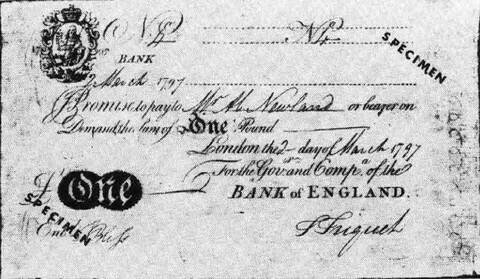 No. 2 No. 2
SPECIMEN
BANK
2 March 1797
I Promise to pay to Mr. Ab. Newland or bearer on
Demand the Sum of One Pound
London the 2 day of March 1797
For the Govr. and Compa. of the
£ One
BANK of ENGLAND.
SPECIMEN
Entd. Bliss
J Triquet